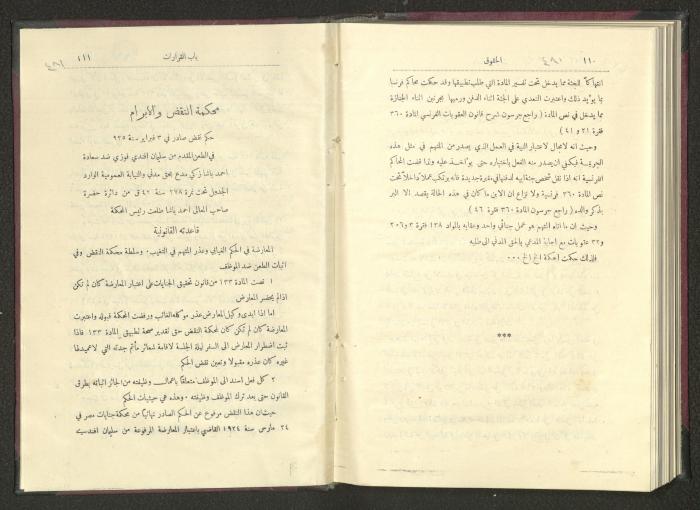 ١١٠ الحقوق
انتهاكاً للجثة مما يدخل تحت تفسير المادة التي طلب تطبيقها وقد حكمت محاكم فرنسا
بما يؤيد ذلك واعتبرت التعدي على الجثة اثناء الدفن ورميها بحجرين اثناء الجنازة
مما يدخل في نص المادة ( راجع جرسون شرح قانون العقوبات الفرنسي لمادة ٣٦٠
فقرة ٢١ و ٤١ )
وحيث انه لامجال لاعتبار النية في العمل الذي يصدر من المتهم في مثل هذه
الجريمة فيكفي ان يصدر منه الفعل باختياره حتى يؤاخذ عليه ولذا قضت المحاكم
الفرنسية انه اذا نقل شخص جثة ابيه لدفنها في مقبرة جديدة فانه يرتكب عملا داخلا تحت
نص المادة ٣٦٠ فرنسية ولا نزاع ان الابن ما كان في هذه الحالة يقصد الا البر
بذكر والده ( راجع جرسون المادة ٣٦٠ فقرة ٤٦ )
وحيث ان ما اتاه المتهم هو عمل جنائي واحد وعقابه بالمواد ١٣٨ فقرة ٣ و٢٠٦
و٣٢ عقوبات مع اجابة المدعي بالحق المدني الى طلبه
فلذلك حكمت المحكمة الخ الخ ٠٠٠
***
باب القرارات ١١١
محكمة النقض والابرام
حكم نقض صادر في ٣ فبراير سنة ٩٢٥
في الطعن المقدم من سليمان افندي فوزي ضد سعادة
احمد باشا زكي مدع بحق مدني والنيابة العمومية الوارد
الجدول تحت نمرة ٢٧٨ سنة ٤٢ ق من دائرة حضرة
صاحب المعالي احمد باشا طلعت رئيس المحكمة
قاعدته القانونية
المعارضة في الحكم الغيابي وعذر المتهم في التغيب ٠ وسلطة محكمة النقض وفي
اثبات الطعن ضد الموظف
١ نصت المادة ١٣٣ من قانون تحقيق الجنايات على اعتبار المعارضة كان لم تكن
اذا لم يحضر المعارض
اما اذا ابدى وكيل المعارض عذر موكله الغائب ورفضت المحكمة قبوله واعتبرت
المعارضة كان لم تكن كان لمحكمة النقض حق تقدير صحة تطبيق المادة ١٣٣ فاذا
ثبت اضطرار المعارض الى السفر ليلة الجلسة لاقامة شعائر مأتم جدته التي لا عميد لها
غيره كان عذره مقبولا وتعين نقض الحكم
٢ كل فعل اسند الى الموظف متعلقا باعمال وظيفته من الجائز اثباته بطرق
القانون حتى بعد ترك الموظف وظيفته ٠ وهذه هي حيثيات الحكم
حيث ان هذا النقض مرفوع عن الحكم الصادر نهائيا من محكمة جنايات مصر في
٢٤ مارس سنة ١٩٢٤ القاضي باعتبار المعارضة المرفوعة من سليمان افندي